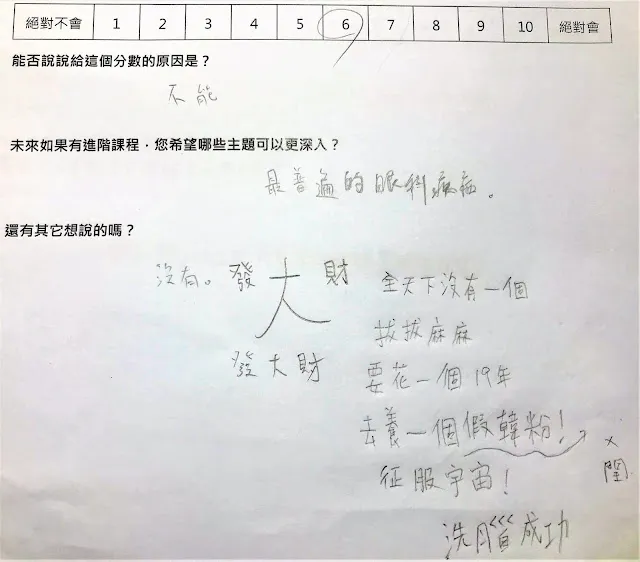 絕對不會 1 2 3 4 5 6 7 8 9 10 絕對會
能否說說給這個分數的原因是？
不能
未來如果有進階課程，您希望哪些主題可以更深入？
最普遍的眼科病症。
還有其它想說的嗎？
沒有。發大財
發大財
全天下沒有一個
拔拔麻麻
要花一個19年
去養一個假韓粉！
x
閨
征服宇宙！
洗腦成功